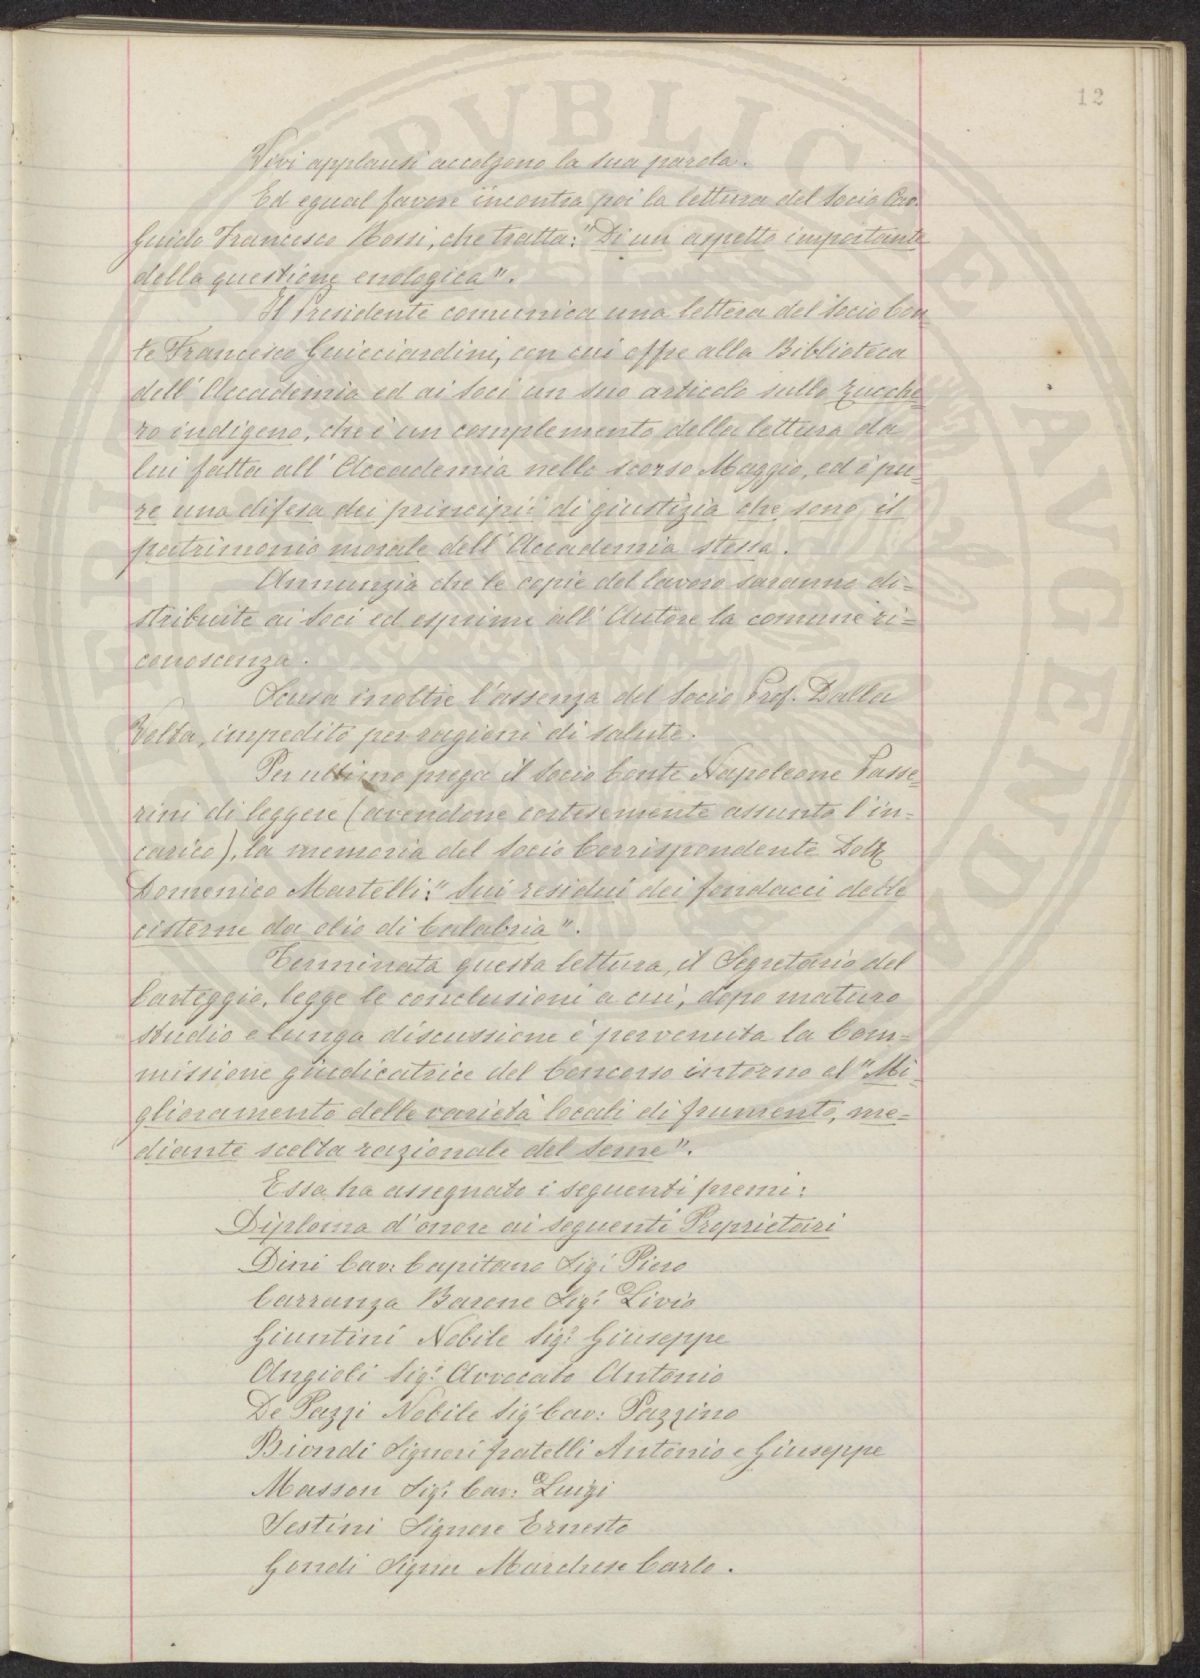 12
Vivi applausi accolgono la sua parola.
Ed egual favore incontra poi la lettura del Socio Cav.
Guido Francesco Rossi, che tratta: "Di un aspetto importante
della questione enologica".
Il Presidente comunica una lettera del Socio Con-
te Francesco Guicciardini, con cui offre alla Biblioteca
dell'Accademia ed ai Soci un suo articolo sullo zucche-
ro indigeno, che è un complemento della lettura da
lui fatta all'Accademia nello scorso Maggio, ed è pu-
re una difesa dei principii di giustizia che sono il
patrimonio morale dell'Accademia stessa.
Annunzia che le copie del lavoro saranno di=
stribuite ai Soci ed esprime all'Autore la comune ri=
conoscenza.
Scusa inoltre l'assenza del Socio Prof. Dalla
Volta, impedito per ragioni di salute.
Per ultimo prega il Socio Conte Napoleone Passe-
rini di leggere (avendone cortesemente assunto l'in-
carico), la memoria del Socio Corrispondente Dott.
Domenico Martelli: "Sui residui dei fondacci delle
cisterne da olio di Calabria".
Terminata questa lettura, il Segretario del
Carteggio, legge le conclusioni a cui, dopo maturo
studio e lunga discussione è pervenuta la Com=
missione giudicatrice del Concorso intorno al "Mi-
glioramento delle varietà locali di frumento, me=
diante scelta razionale del seme".
Essa ha assegnato i seguenti premi:
Diploma d'onore ai seguenti Proprietari
Dini Cav: Capitano Sigr Piero
Carranza Barone Sigr Livio
Giuntini Nobile Sigr Giuseppe
Angioli Sigr Avvocato Antonio
De Pazzi Nobile Sigr Cav: Pazzino
Biondi Signori fratelli Antonio e Giuseppe
Masson Sigr Cav: Luigi
Testini Signore Ernesto
Gondi Signor Marchese Carlo.